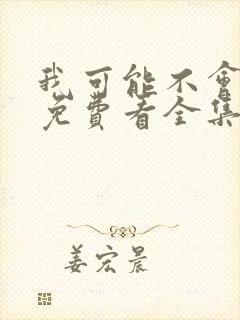 我可能不會
免費看全集
姜宏晨